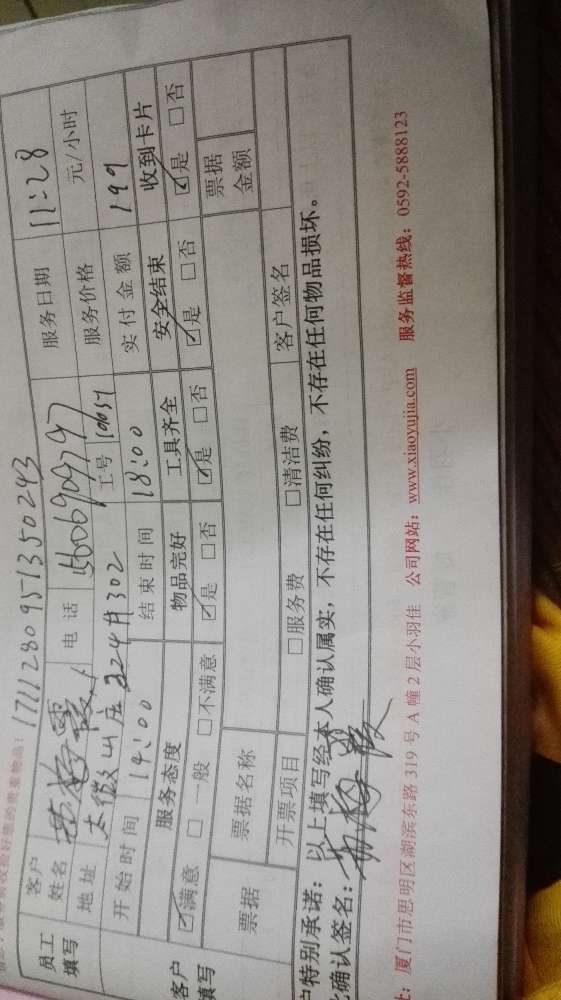 收拾好您的贵重物品！ 171128095135 0243
员工填写 客户姓名 电话 服务日期 11:28
地址 太微山庄224号302 工号 服务价格 元/小时
开始时间 14:00 结束时间 18:00 实付金额 199
客户填写 服务态度 物品完好 工具齐全 安全结束 收到卡片
☑满意 □一般 □不满意 ☑是 □否 ☑是 □否 ☑是 □否 ☑是 □否
票据 票据名称 票据金额
开票项目 □服务费 □清洁费 客户签名
户特别承诺：以上填写经本人确认属实，不存在任何纠纷，不存在任何物品损坏。
此确认签名：
址：厦门市思明区湖滨东路319号A幢2层小羽佳 公司网站：www.xiaoyujia.com 服务监督热线：0592-5888123